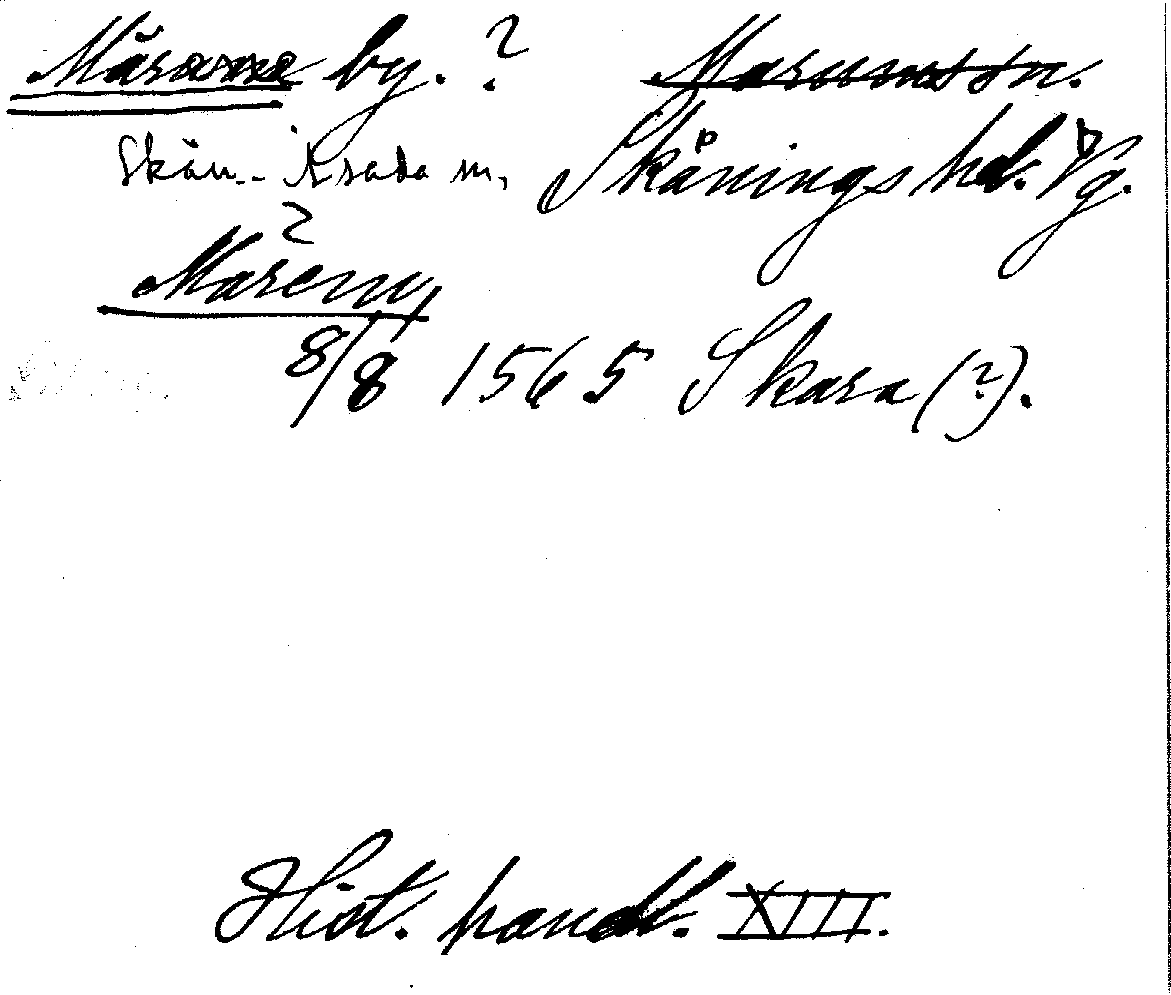 Mårarne by. ? Marumssn.
Skån.-Åsada sn, Skånings hd. Vg.
?
Marem,
8/8 1565 Skara (?).
Hist. handl. XIII.